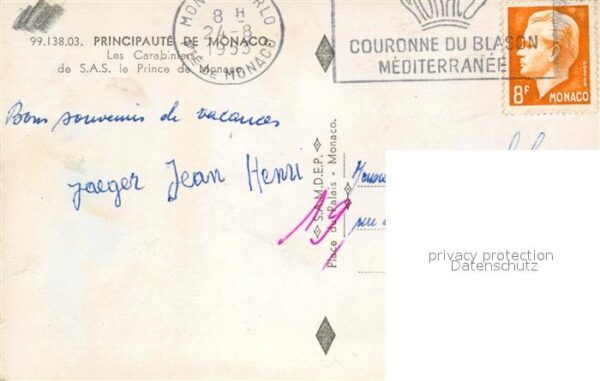 99.138.03. PRINCIPAUTÉ DE MONACO
Les Carabiniers
de S.A.S. le Prince de Monaco
MONTE-CARLO
8 H
24-8
1953
PTÉ DE MONACO
MONACO
COURONNE DU BLASON
MÉDITERRANÉE
8F MONACO
Bons souvenirs de vacances
Jaeger Jean Henri
S.A.M.D.E.P.
Place du Palais - Monaco.
19
privacy protection
Datenschutz